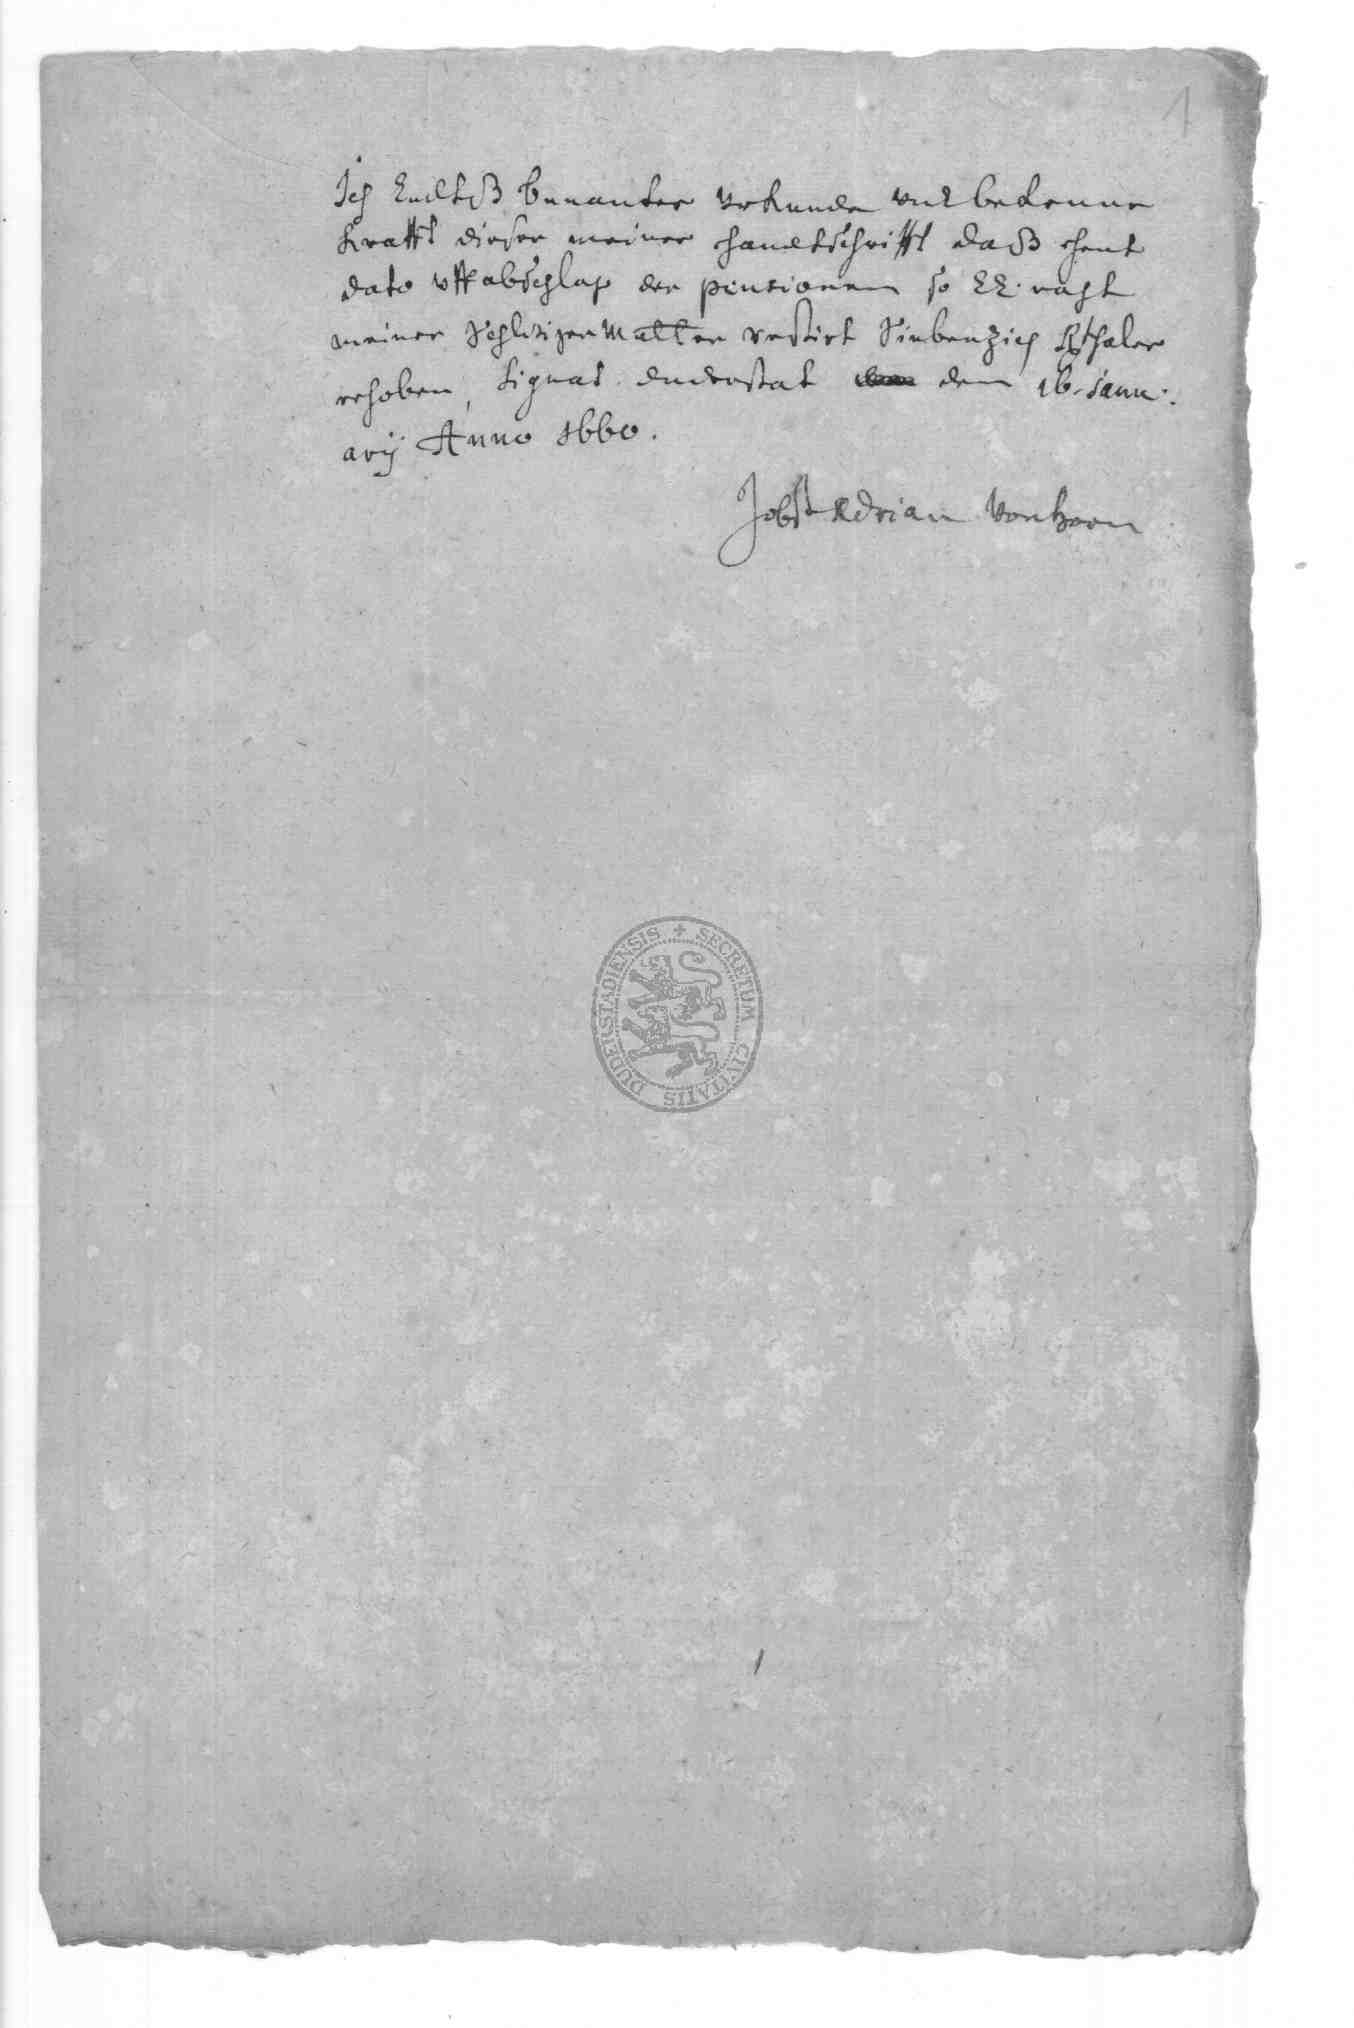 1
Ich Endtß benanter Vrkunde vnd bekenne
Krafft dieser meiner handtschrifft daß heut
dato vff abschlag der pensionen so EE. raht
meiner Mutter restirt Siebenzich Rthaler
erhoben, Signat. duderstat dem 16. Janu:
arij Anno 1660.
Jobst Adrian Von Horn
SECRETUM CIVITATIS DUDERSTADIENSIS